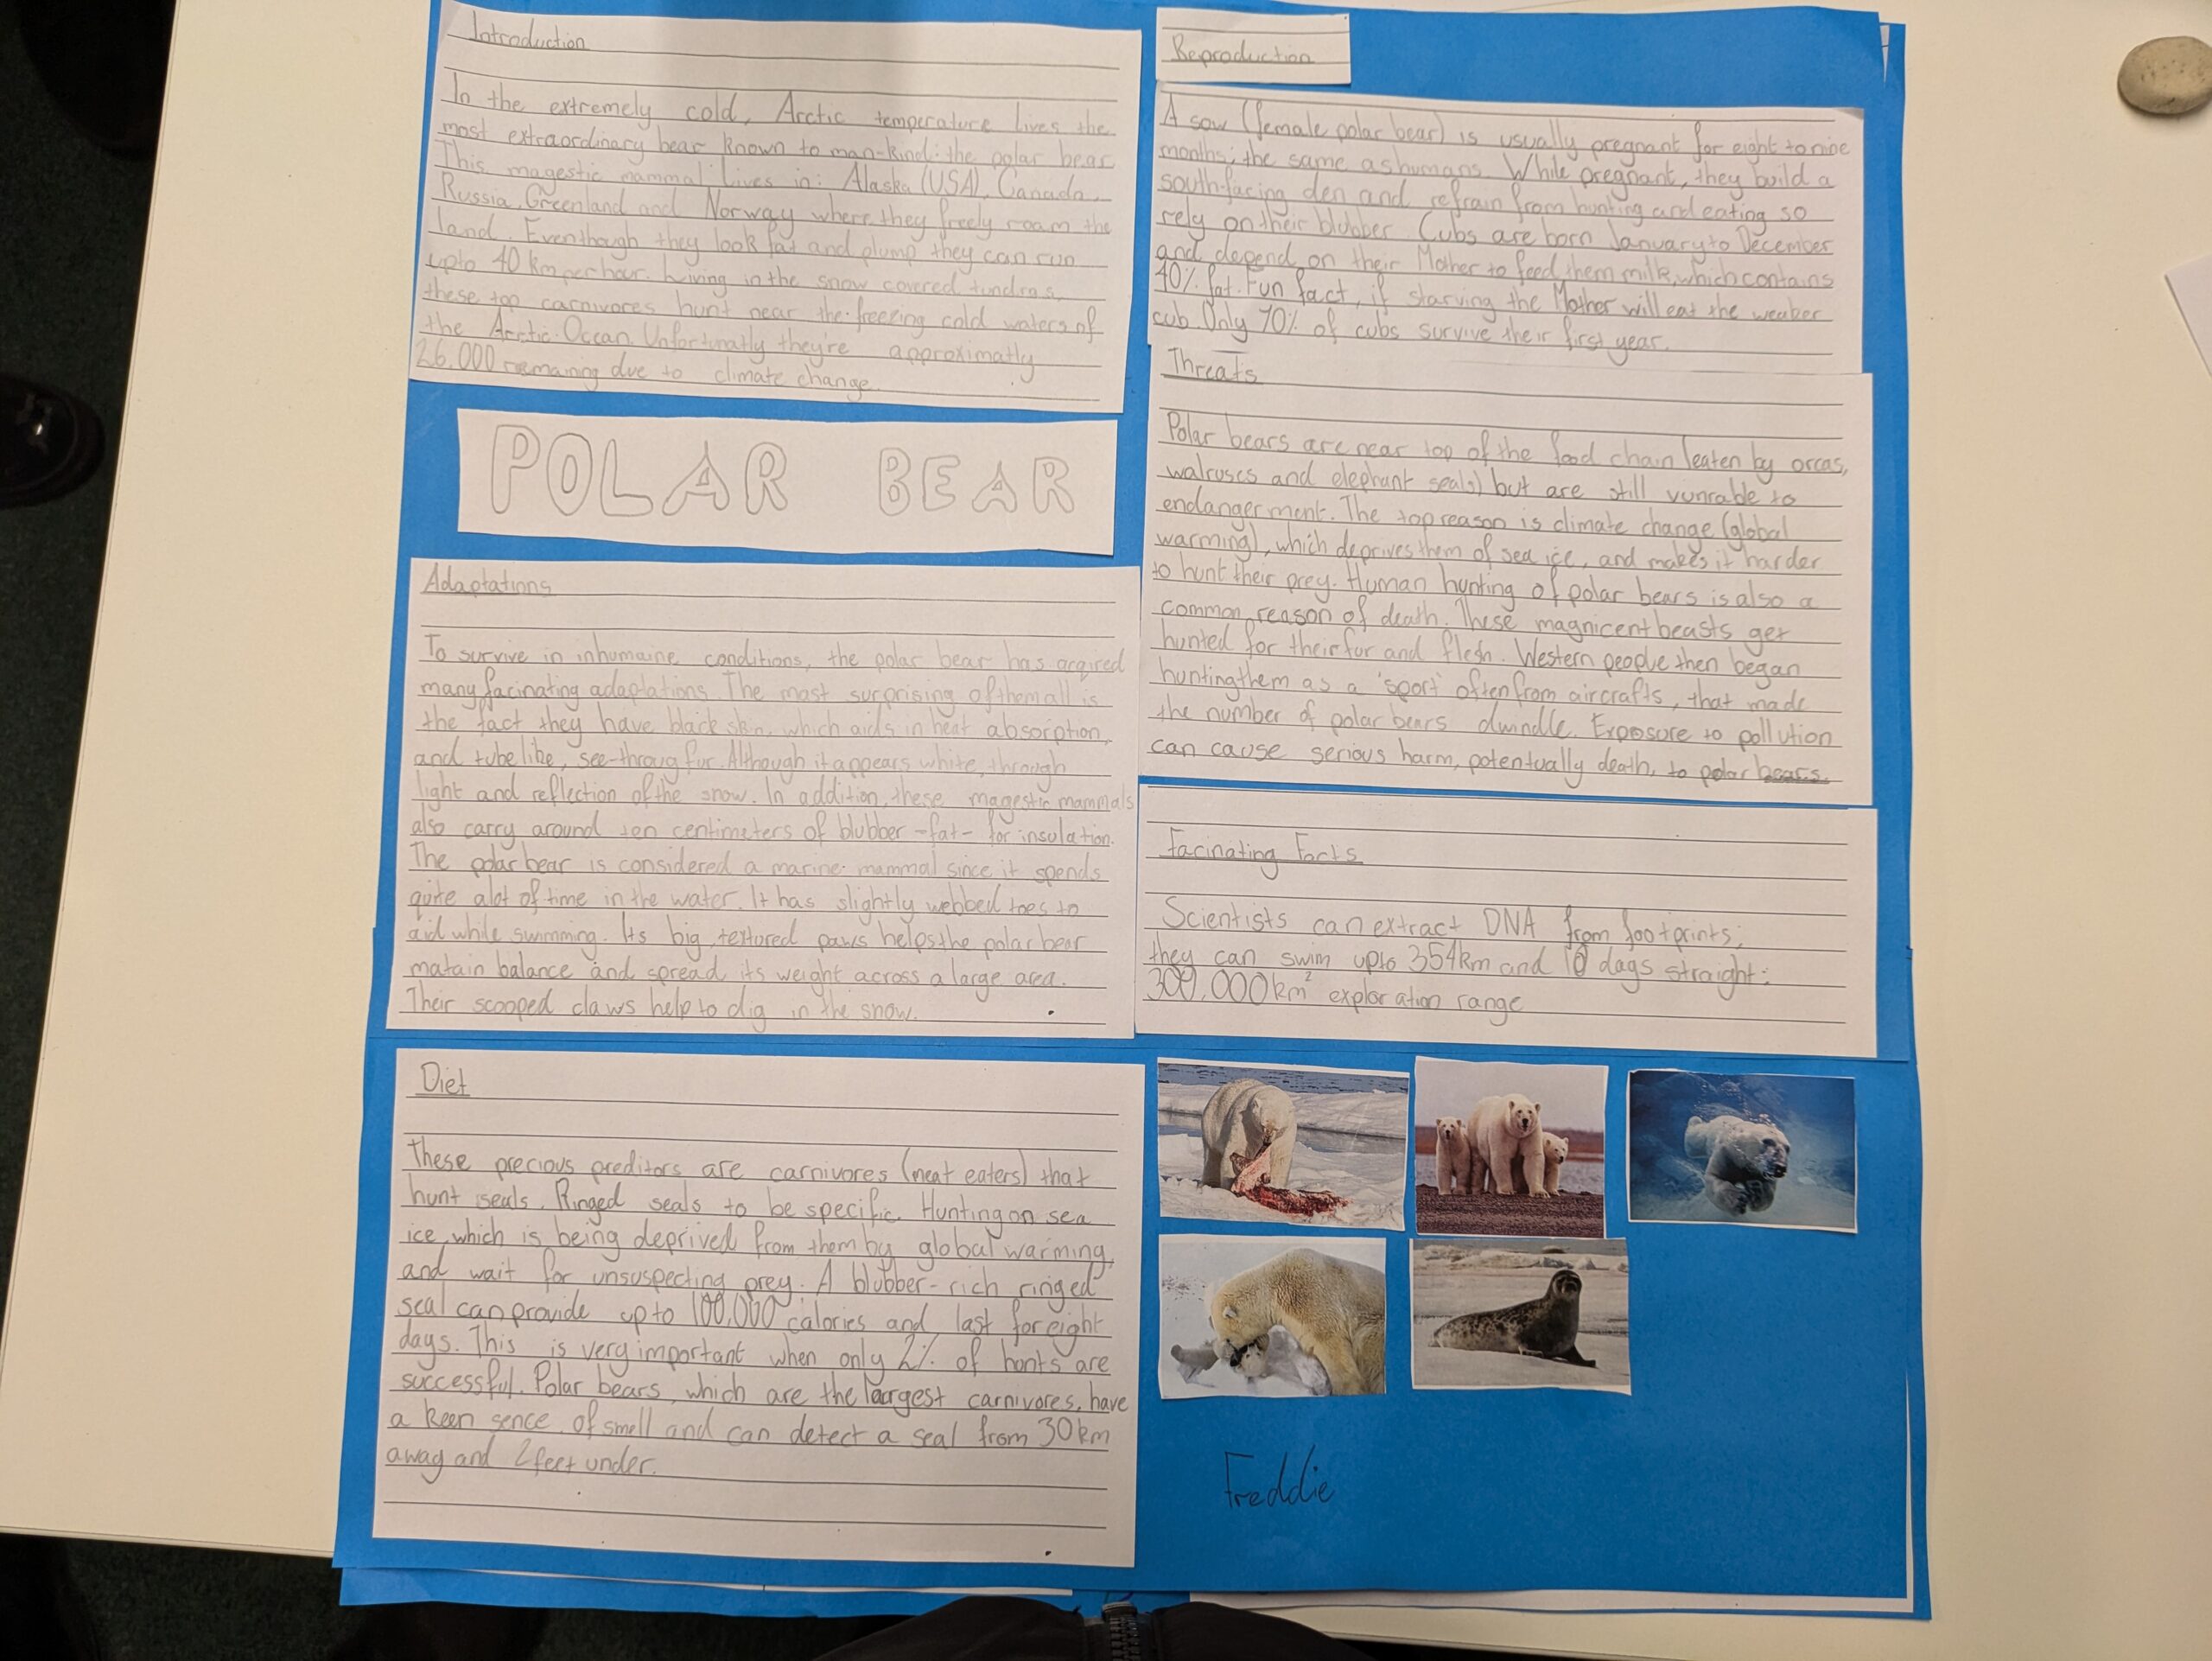 Introduction
In the extremely cold, Arctic temperature lives the
most extraordinary bear known to man-kind: the polar bear.
This magestic mammal lives in: Alaska (USA), Canada,
Russia, Greenland and Norway where they freely roam the
land. Eventhough they look fat and plump they can run
upto 40 km per hour. Living in the snow covered tundras,
these top carnivores hunt near the freezing cold waters of
the Arctic Occan. Unfortunatly they're approximatly
26,000 remaining due to climate change.
POLAR BEAR
Adaptations
To survive in inhumaine conditions, the polar bear has acqired
many facinating adaptations. The most surprising of them all is
the fact they have black skin, which aids in heat absorption,
and tube like, see-throug fur. Although it appears white, through
light and reflection of the snow. In addition, these magestic mammals
also carry around ten centimeters of blubber -fat- for insulation.
The polar bear is considered a marine mammal since it spends
quite alot of time in the water. It has slightly webbed toes to
aid while swimming. Its big, textored paws helps the polar bear
matain balance and spread its weight across a large area.
Their scooped claws help to dig in the snow.
Diet
These precious preditors are carnivores (meat eaters) that
hunt seals. Ringed seals to be specific. Hunting on sea
ice, which is being deprived from them by global warming,
and wait for unsuspecting prey. A blubber-rich ringed
seal can provide up to 100,000 calories and last for eight
days. This is very important when only 2% of hunts are
successful. Polar bears, which are the largest carnivores, have
a keen sence of smell and can detect a seal from 30 km
away and 2 feet under.
Reproduction
A sow (female polar bear) is usually pregnant for eight to nine
months; the same as humans. While pregnant, they build a
south-facing den and refrain from hunting and eating so
rely on their blubber. Cubs are born January to December
and depend on their Mother to feed them milk, which contains
40% fat. Fun fact, if starving the Mother will eat the weaker
cub. Only 70% of cubs survive their first year.
Threats
Polar bears are near top of the food chain (eaten by orcas,
walruses and elephant seals) but are still vunrable to
endangerment. The top reason is climate change (global
warming), which deprives them of sea ice, and makes it harder
to hunt their prey. Human hunting of polar bears is also a
common reason of death. These magnicent beasts get
hunted for their fur and flesh. Western people then began
hunting them as a 'sport' often from aircrafts, that made
the number of polar bears dwindle. Exposure to pollution
can cause serious harm, potentually death, to polar bears.
Facinating Facts
Scientists can extract DNA from footprints;
they can swim upto 354km and 10 days straight;
300,000km² exploration range
Freddie